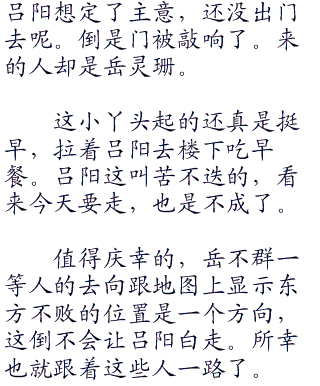 吕阳想定了主意，还没出门
去呢。倒是门被敲响了。来
的人却是岳灵珊。
这小丫头起的还真是挺
早，拉着吕阳去楼下吃早
餐。吕阳这叫苦不迭的，看
来今天要走，也是不成了。
值得庆幸的，岳不群一
等人的去向跟地图上显示东
方不败的位置是一个方向，
这倒不会让吕阳白走。所幸
也就跟着这些人一路了。